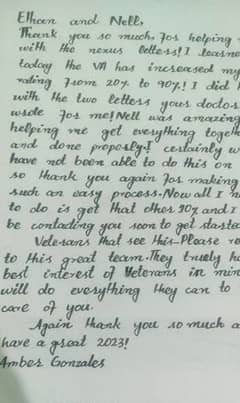 Ethan and Nell,
Thank you so much, for helping
with the nexus letters! I learne
today the VA has increased my
rating from 20% to 90%! I did
with the two letters your doctor
wrote for me! Nell was amazing
helping me get everything togeth
and done properly! certainly w
have not been able to do this on
so thank you again for making
such an easy process. Now all I n
to do is get that other 10% and I
be contacting you soon to get starte
Veterans that see this-Please re
to this great team. They truely ha
best interest of Veterans in min
will do everything they can to
care of you.
Again thank you so much a
have a great 2023!
Amber Gonzales